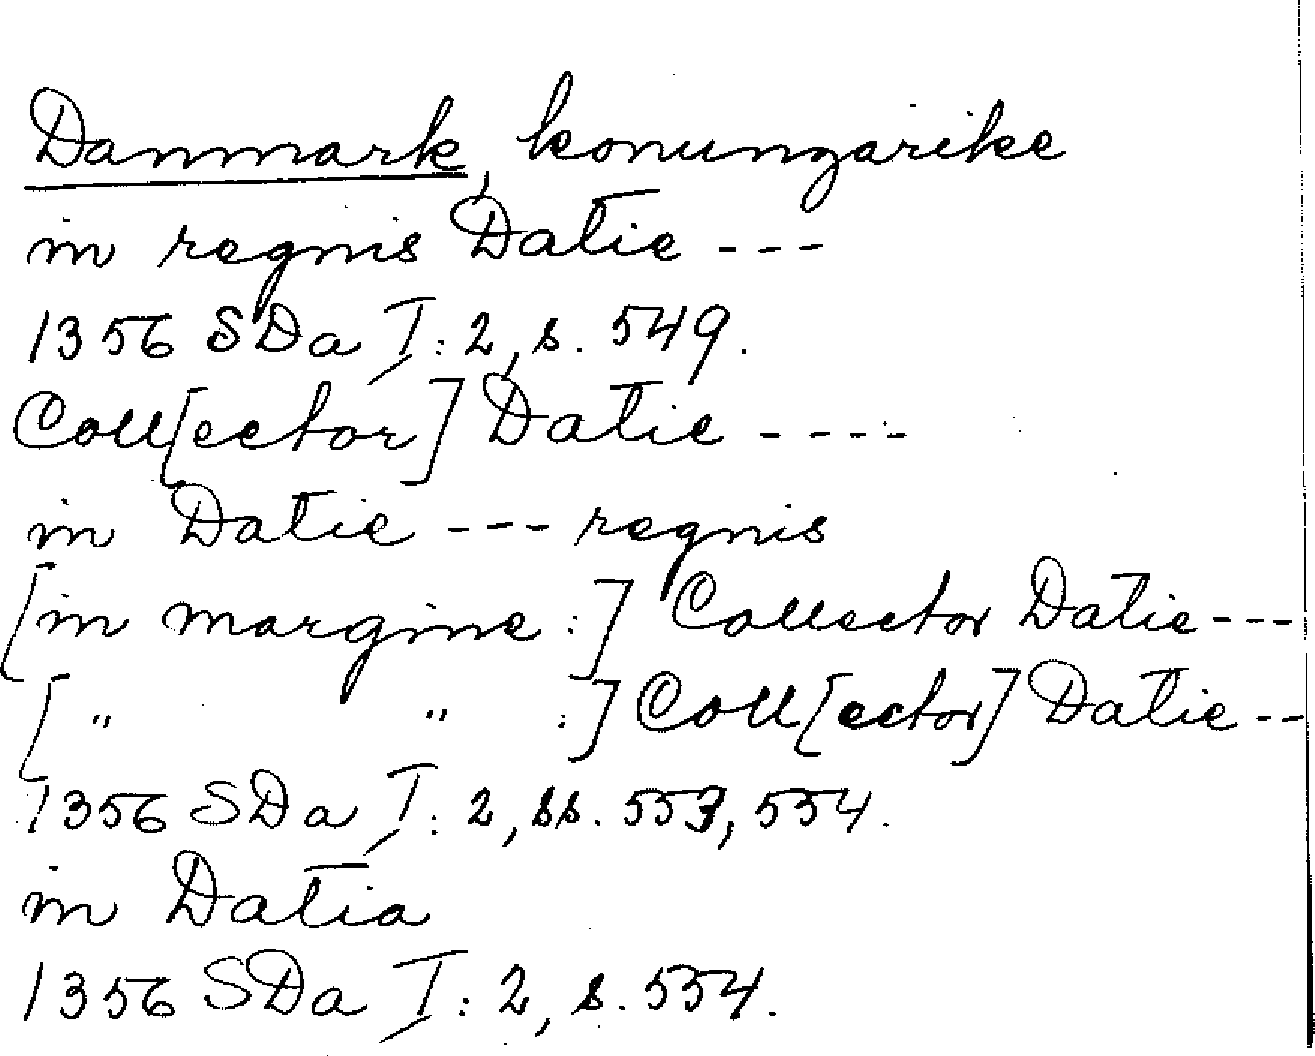 Danmark, konungarike
in regnis Datie ---
1356 SDa I:2, s. 549.
Coll[ector] Datie ----
in Datie --- regnis
[in margine:] Collector Datie ---
[" " :] Coll[ector] Datie --
1356 SDa I:2, ss. 553, 554.
in Datia
1356 SDa I:2, s. 554.